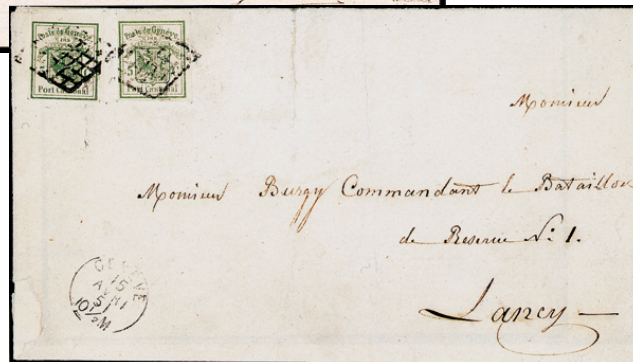 Poste de Genève
Port Cantonal
Poste de Genève
5
Port Cantonal
Monsieur
Monsieur Burgy Commandant le Bataillon
de Reserve No. 1.
Lancy —
GENEVE
15
AVRI
51
10½M